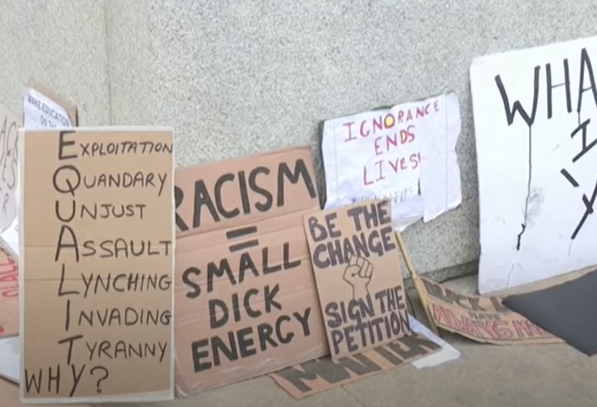 EXPLOITATION
QUANDARY
UNJUST
ASSAULT
LYNCHING
INVADING
TYRANNY
WHY?
RACISM
=
SMALL
DICK
ENERGY
BE THE
CHANGE
SIGN THE
PETITION
MATTER
IGNORANCE
ENDS
LIVES!
WHA
I